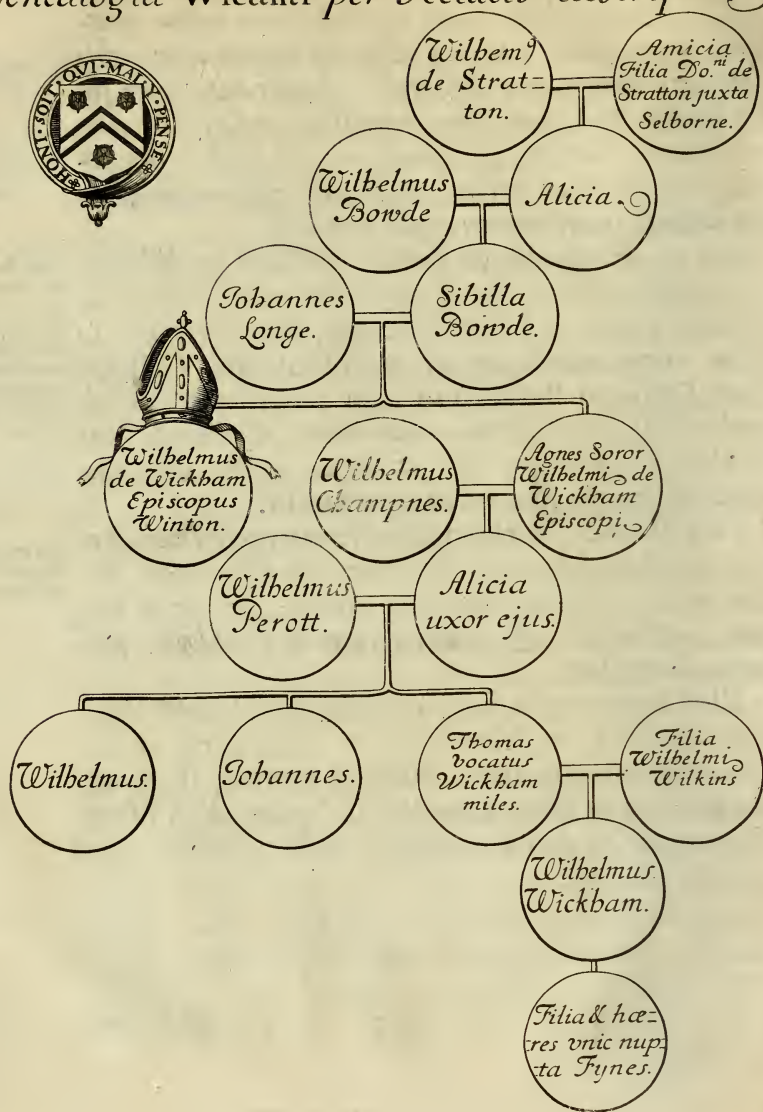 Wickhami per
HONI · SOIT · QVI · MAL · Y · PENSE
Wilhem9
de Strat=
ton.
Amicia
Filia Do.ni de
Stratton juxta
Selborne.
Wilhelmus
Bowde
Alicia.
Johannes
Longe.
Sibilla
Bowde.
Wilhelmus
de Wickham
Episcopus
Winton.
Wilhelmus
Champnes.
Agnes Soror
Wilhelmi de
Wickham
Episcopi
Wilhelmus
Perott.
Alicia
uxor ejus.
Wilhelmus.
Johannes.
Thomas
vocatus
Wickham
miles.
Filia
Wilhelmi
Wilkins
Wilhelmus
Wickham.
Filia & hæ=
=res vnic nup=
=ta Fynes.